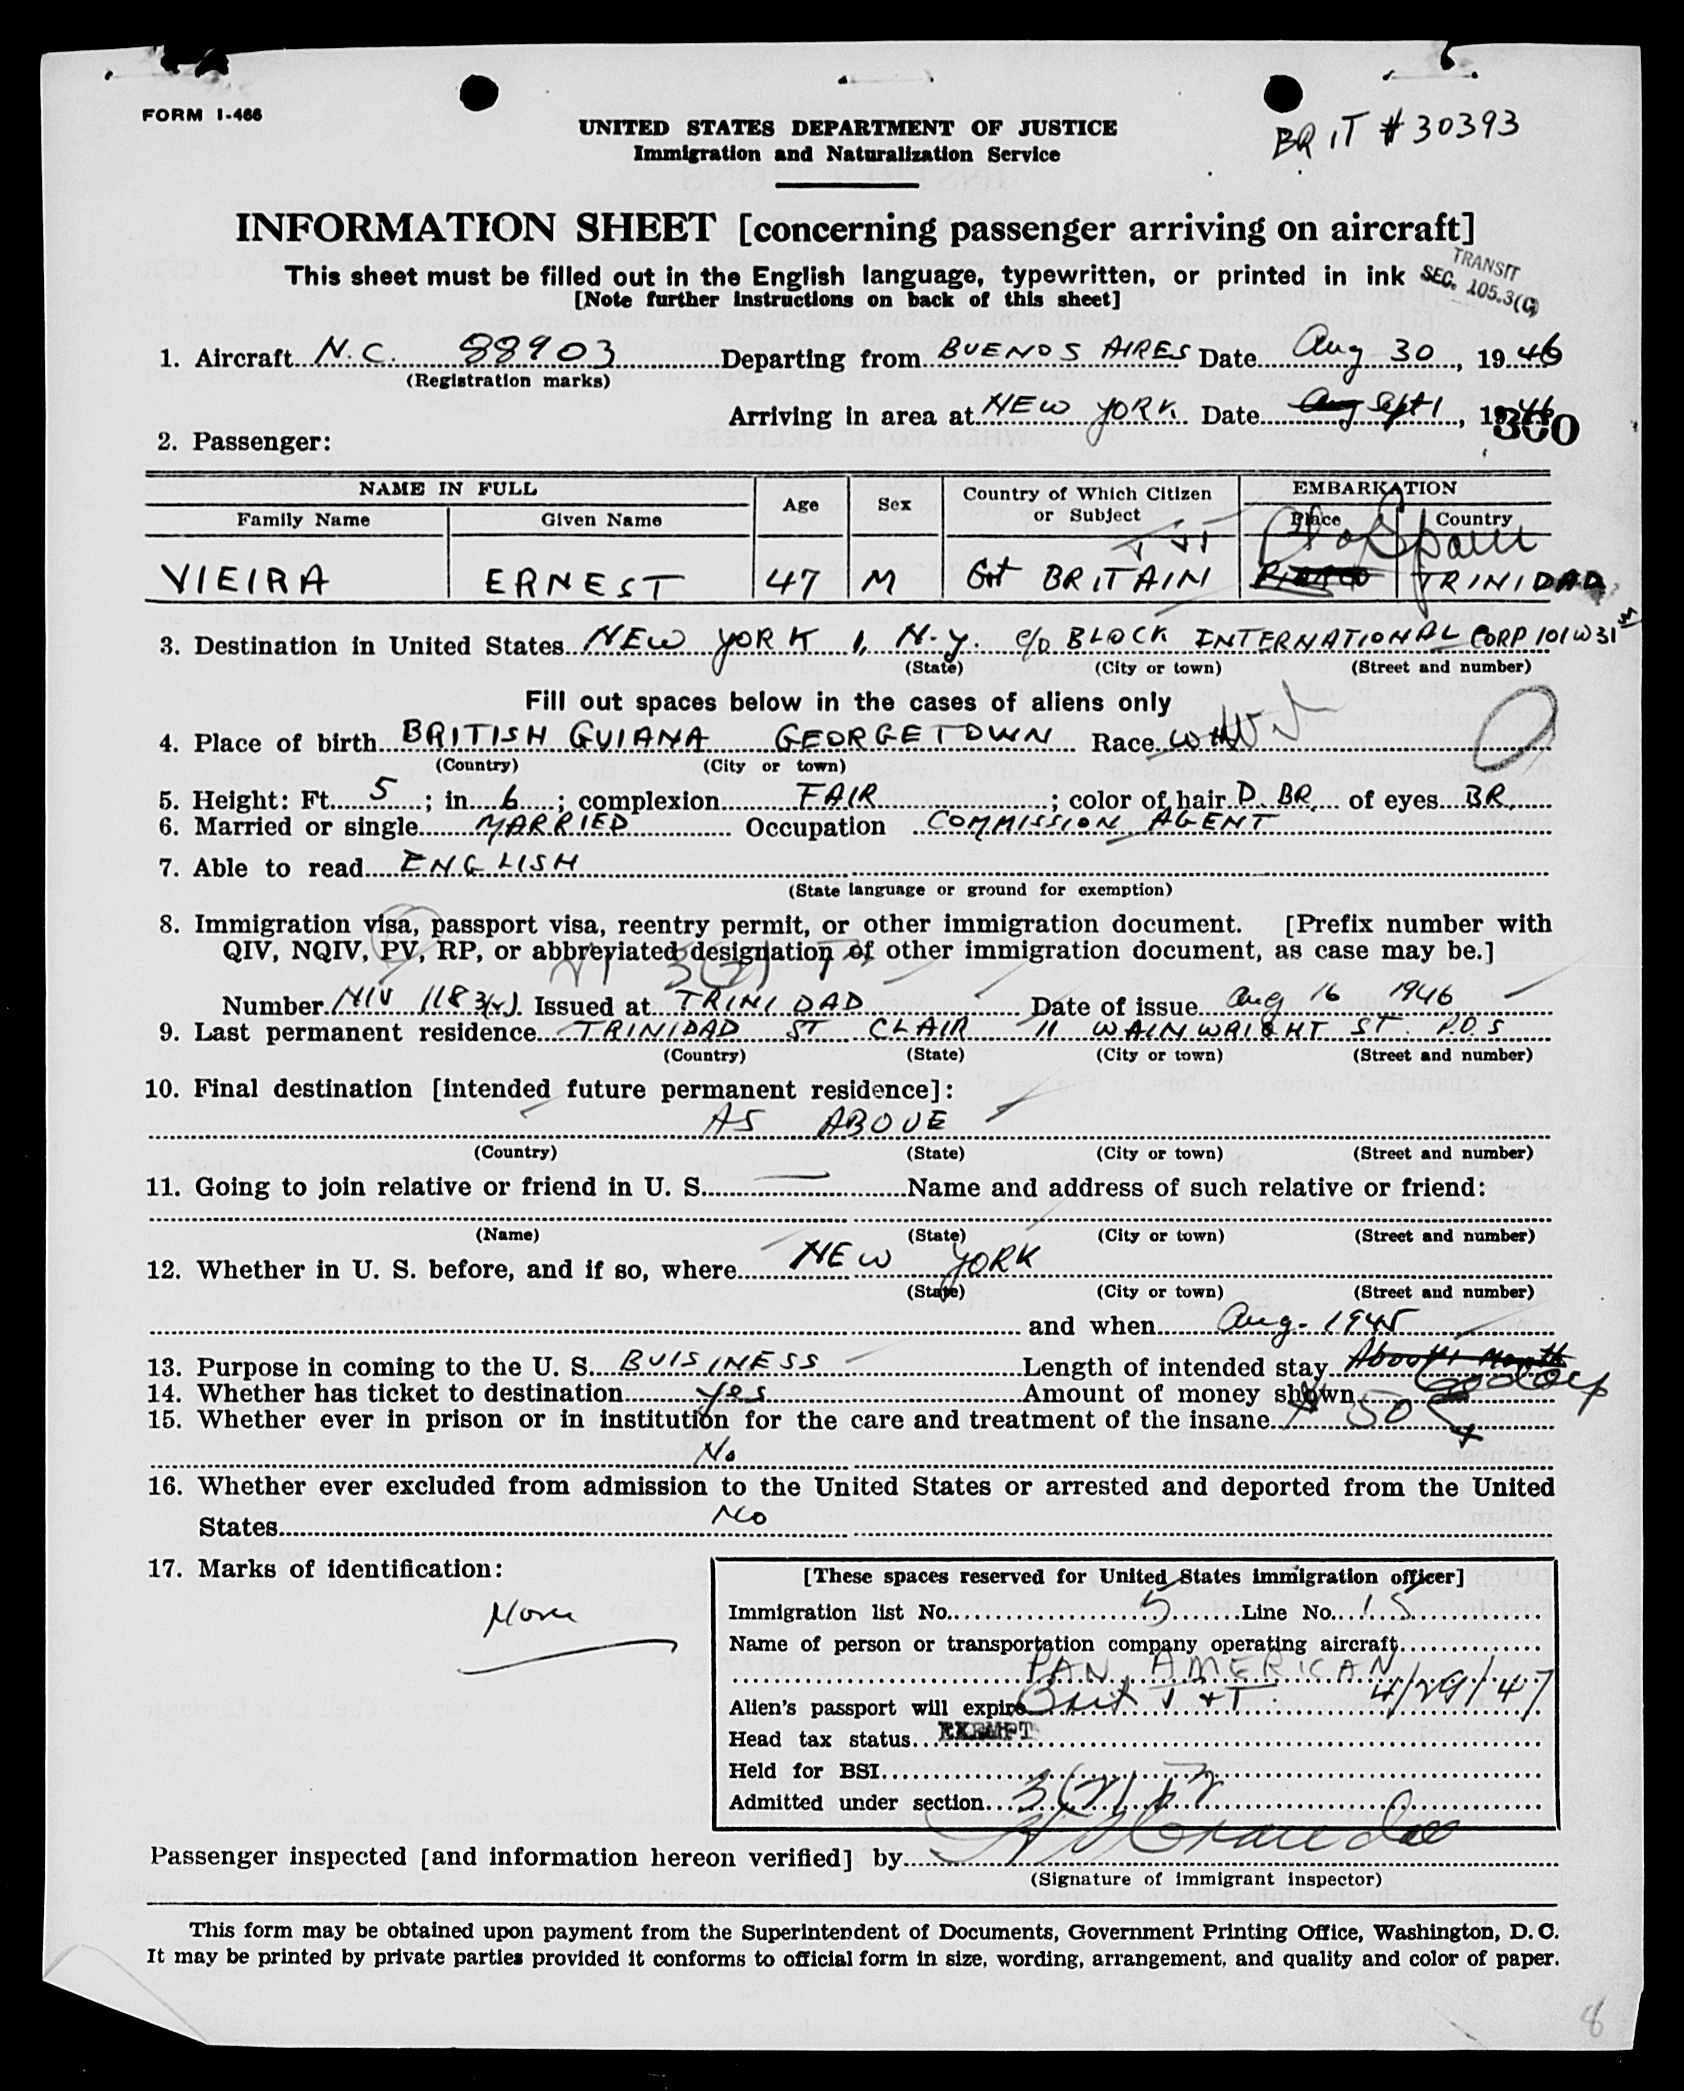 FORM I-466
UNITED STATES DEPARTMENT OF JUSTICE
Immigration and Naturalization Service
BR IT # 30393
INFORMATION SHEET [concerning passenger arriving on aircraft]
This sheet must be filled out in the English language, typewritten, or printed in ink
[Note further instructions on back of this sheet]
TRANSIT
SEC. 105.3(C)
1. Aircraft N.C. 88903 Departing from BUENOS AIRES Date Aug 30, 1946
(Registration marks)
Arriving in area at NEW YORK Date Aug Sept 1, 1946
300
2. Passenger:
NAME IN FULL Age Sex Country of Which Citizen or Subject EMBARKATION
Family Name Given Name Place Country
P of Spain
VIEIRA ERNEST 47 M Gt BRITAIN TRINIDAD
3. Destination in United States NEW YORK 1, N.Y. c/o BLOCK INTERNATIONAL CORP 101 W 31 st
(State) (City or town) (Street and number)
Fill out spaces below in the cases of aliens only
4. Place of birth BRITISH GUIANA GEORGETOWN Race
(Country) (City or town)
5. Height: Ft. 5; in. 6; complexion FAIR; color of hair D. BR. of eyes BR.
6. Married or single MARRIED Occupation COMMISSION AGENT
7. Able to read ENGLISH
(State language or ground for exemption)
8. Immigration visa, passport visa, reentry permit, or other immigration document. [Prefix number with
QIV, NQIV, PV, RP, or abbreviated designation of other immigration document, as case may be.]
Number NIV 118 3(2) Issued at TRINIDAD Date of issue Aug 16 1946
9. Last permanent residence TRINIDAD ST CLAIR 11 WAINWRIGHT ST. P.O.S
(Country) (State) (City or town) (Street and number)
10. Final destination [intended future permanent residence]:
AS ABOVE
(Country) (State) (City or town) (Street and number)
11. Going to join relative or friend in U. S. — Name and address of such relative or friend:
(Name) (State) (City or town) (Street and number)
12. Whether in U. S. before, and if so, where NEW YORK
(State) (City or town) (Street and number)
and when Aug. 1945
13. Purpose in coming to the U. S. BUISINESS Length of intended stay About 1 Month
14. Whether has ticket to destination Yes Amount of money shown
15. Whether ever in prison or in institution for the care and treatment of the insane 50
No
16. Whether ever excluded from admission to the United States or arrested and deported from the United
States No
17. Marks of identification:
None
[These spaces reserved for United States immigration officer]
Immigration list No. 5 Line No. 15
Name of person or transportation company operating aircraft
PAN AMERICAN
Alien's passport will expire Brit T + T 4/29/47
Head tax status EXEMPT
Held for BSI
Admitted under section 3(2)
Passenger inspected [and information hereon verified] by
(Signature of immigrant inspector)
This form may be obtained upon payment from the Superintendent of Documents, Government Printing Office, Washington, D. C.
It may be printed by private parties provided it conforms to official form in size, wording, arrangement, and quality and color of paper.
8